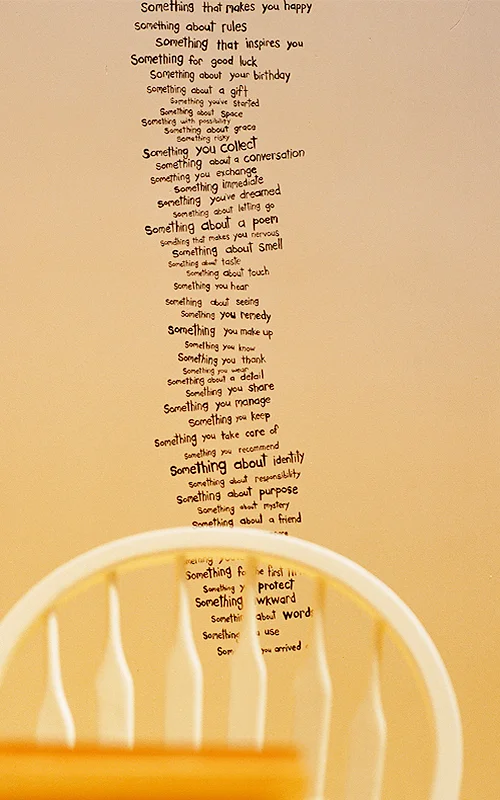 Something that makes you happy
Something about rules
Something that inspires you
Something for good luck
Something about your birthday
Something about a gift
Something you've started
Something about space
Something with possibility
Something about grace
Something risky
Something you collect
Something about a conversation
Something you exchange
Something immediate
Something you've dreamed
Something about letting go
Something about a poem
Something that makes you nervous
Something about smell
Something about taste
Something about touch
Something you hear
Something about seeing
Something you remedy
Something you make up
Something you know
Something you thank
Something you wear
Something about a detail
Something you share
Something you manage
Something you keep
Something you take care of
Something you recommend
Something about identity
Something about responsibility
Something about purpose
Something about mystery
Something about a friend
Something the first
Something protect
Something
Something about words
Something use
you arrived